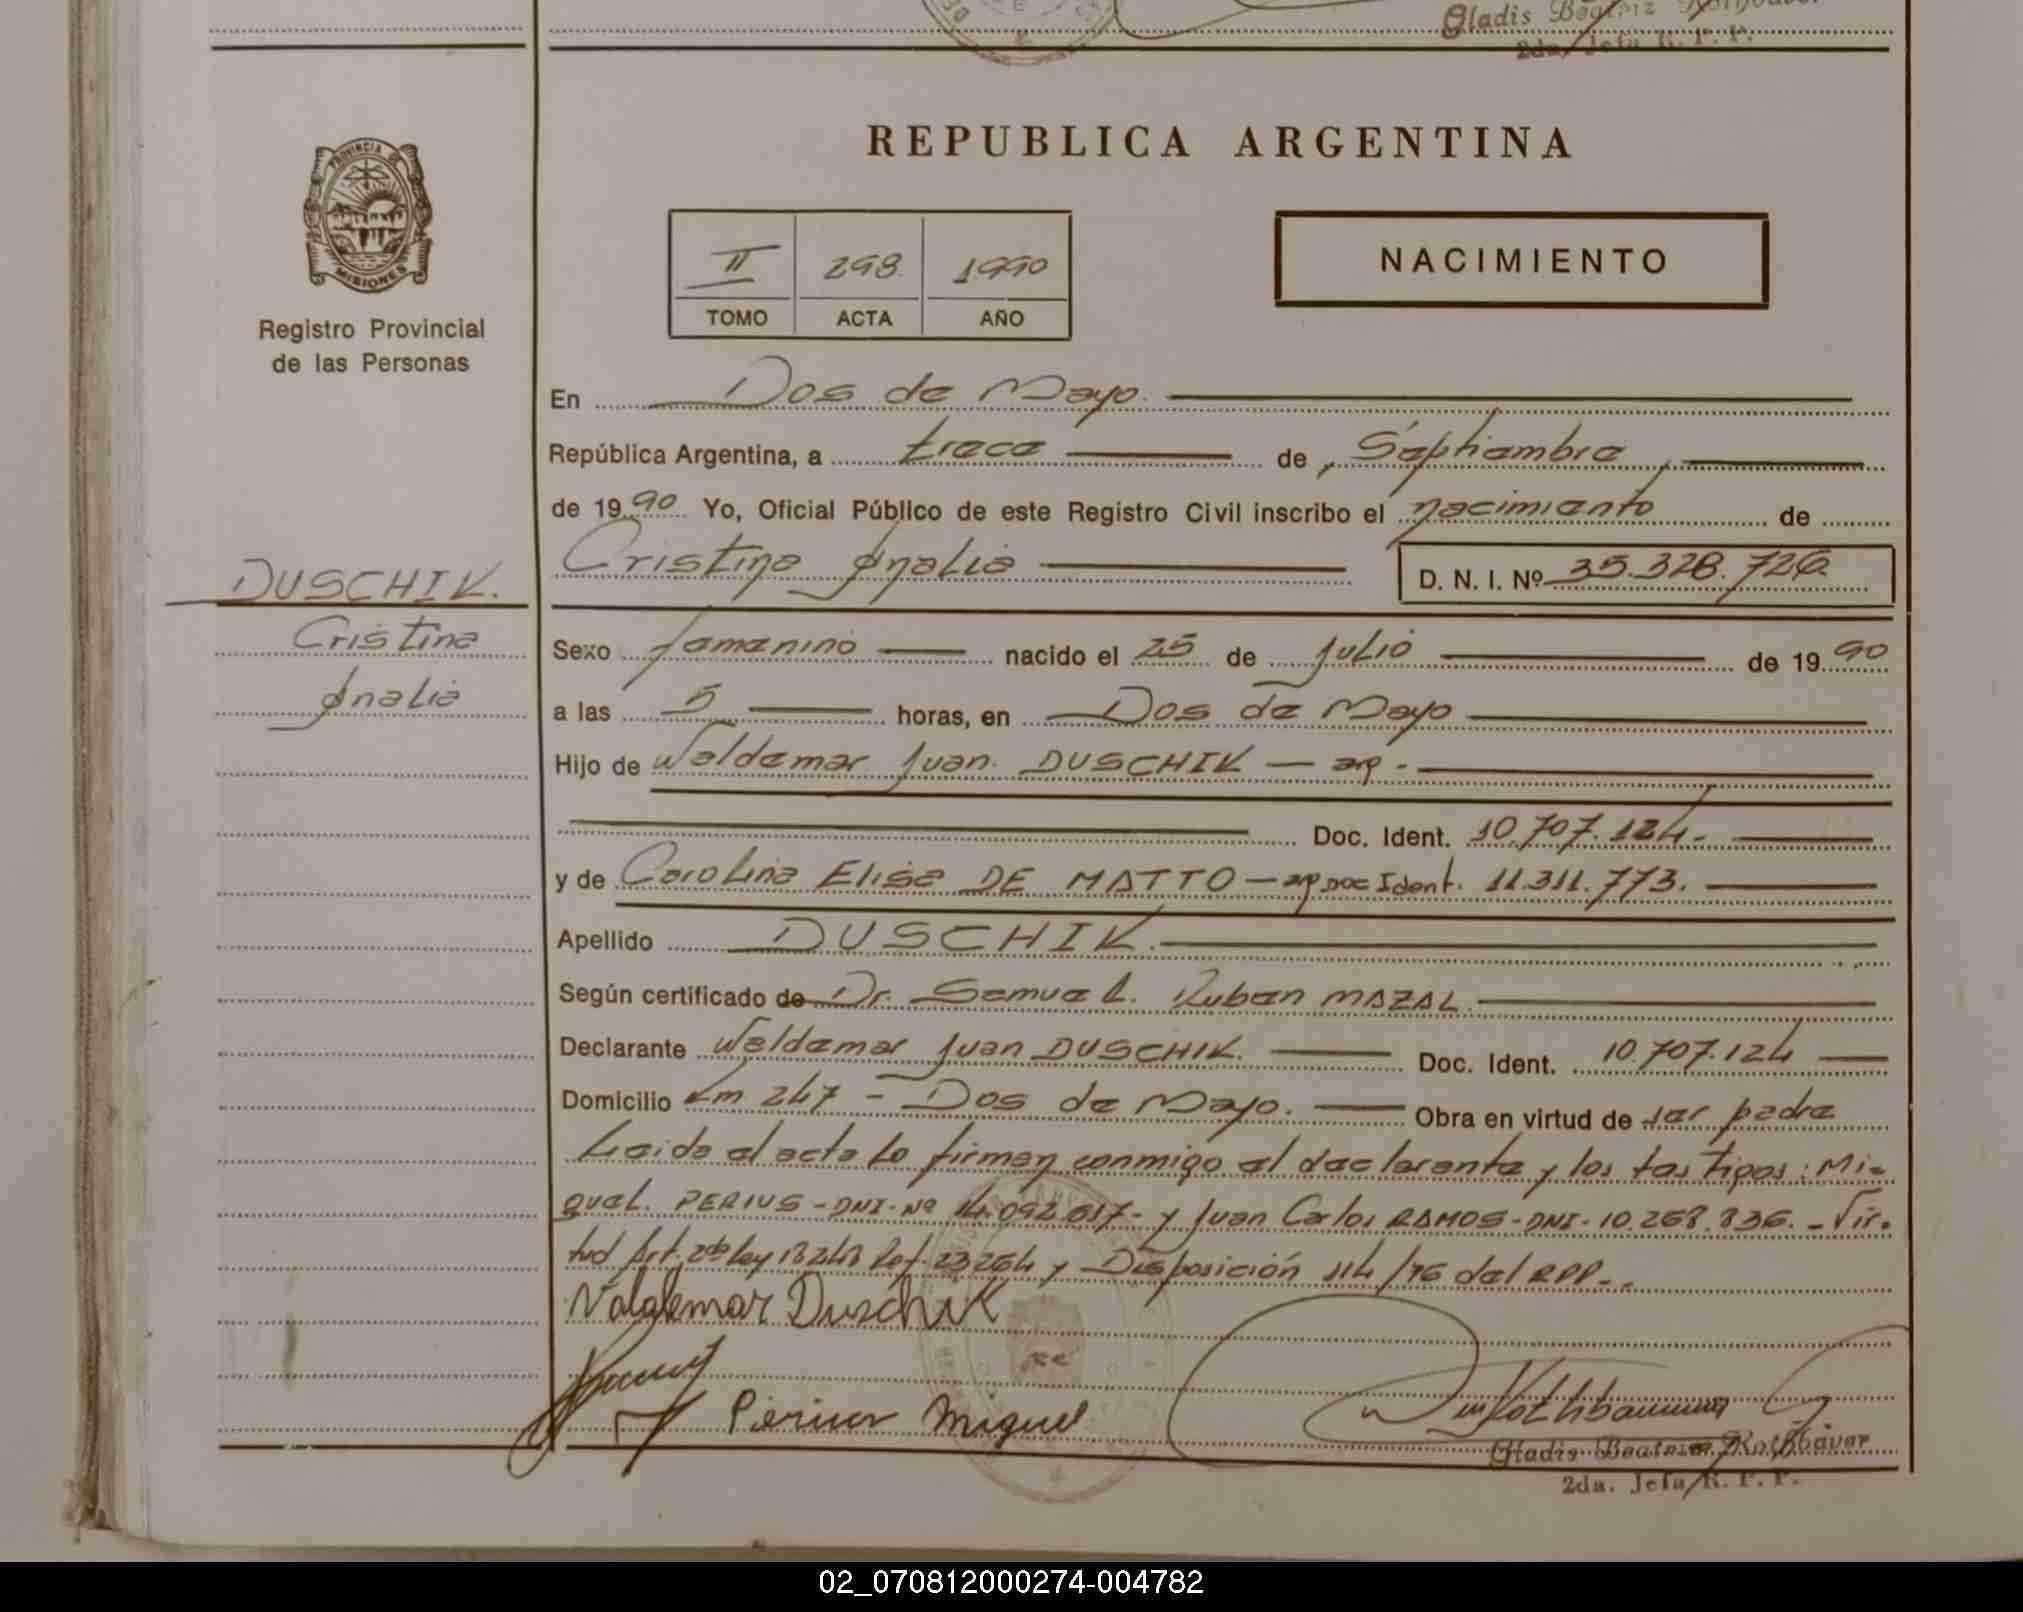 Gladis Beatriz Rothbaver
2da. Jefa R. P. P.
PROVINCIA DE
MISIONES
Registro Provincial
de las Personas
REPUBLICA ARGENTINA
II 298 1990
TOMO ACTA AÑO
NACIMIENTO
En Dos de Mayo.
República Argentina, a trece de Septiembre
de 1990 Yo, Oficial Público de este Registro Civil inscribo el nacimiento de
Cristina Analia D. N. I. Nº 35.328.726
DUSCHIK.
Cristina
Analia
Sexo femenino nacido el 25 de julio de 1990
a las 5 horas, en Dos de Mayo
Hijo de Waldemar Juan DUSCHIK - arg -
Doc. Ident. 10.707.124.-
y de Carolina Elisa DE MATTO - arg Doc Ident. 11.311.773.
Apellido DUSCHIK.
Según certificado de Dr. Samuel. Ruben MAZAL.
Declarante Waldemar Juan DUSCHIK. Doc. Ident. 10.707.124
Domicilio Km 247 - Dos de Mayo. Obra en virtud de ser padre
Leida el acta lo firman conmigo el declarante y los testigos: Mi-
guel. PERIUS - DNI - Nº 14.092.617 - y Juan Carlos RAMOS - DNI - 10.268.836. - Vir-
tud Art. 2do ley 18248 Ref. 23264 y Disposición 114/76 del RPP.-
Valdemar Duschik
Perius Miguel
Gladis Beatriz Rothbaver
2da. Jefa R. P. P.
02_070812000274-004782